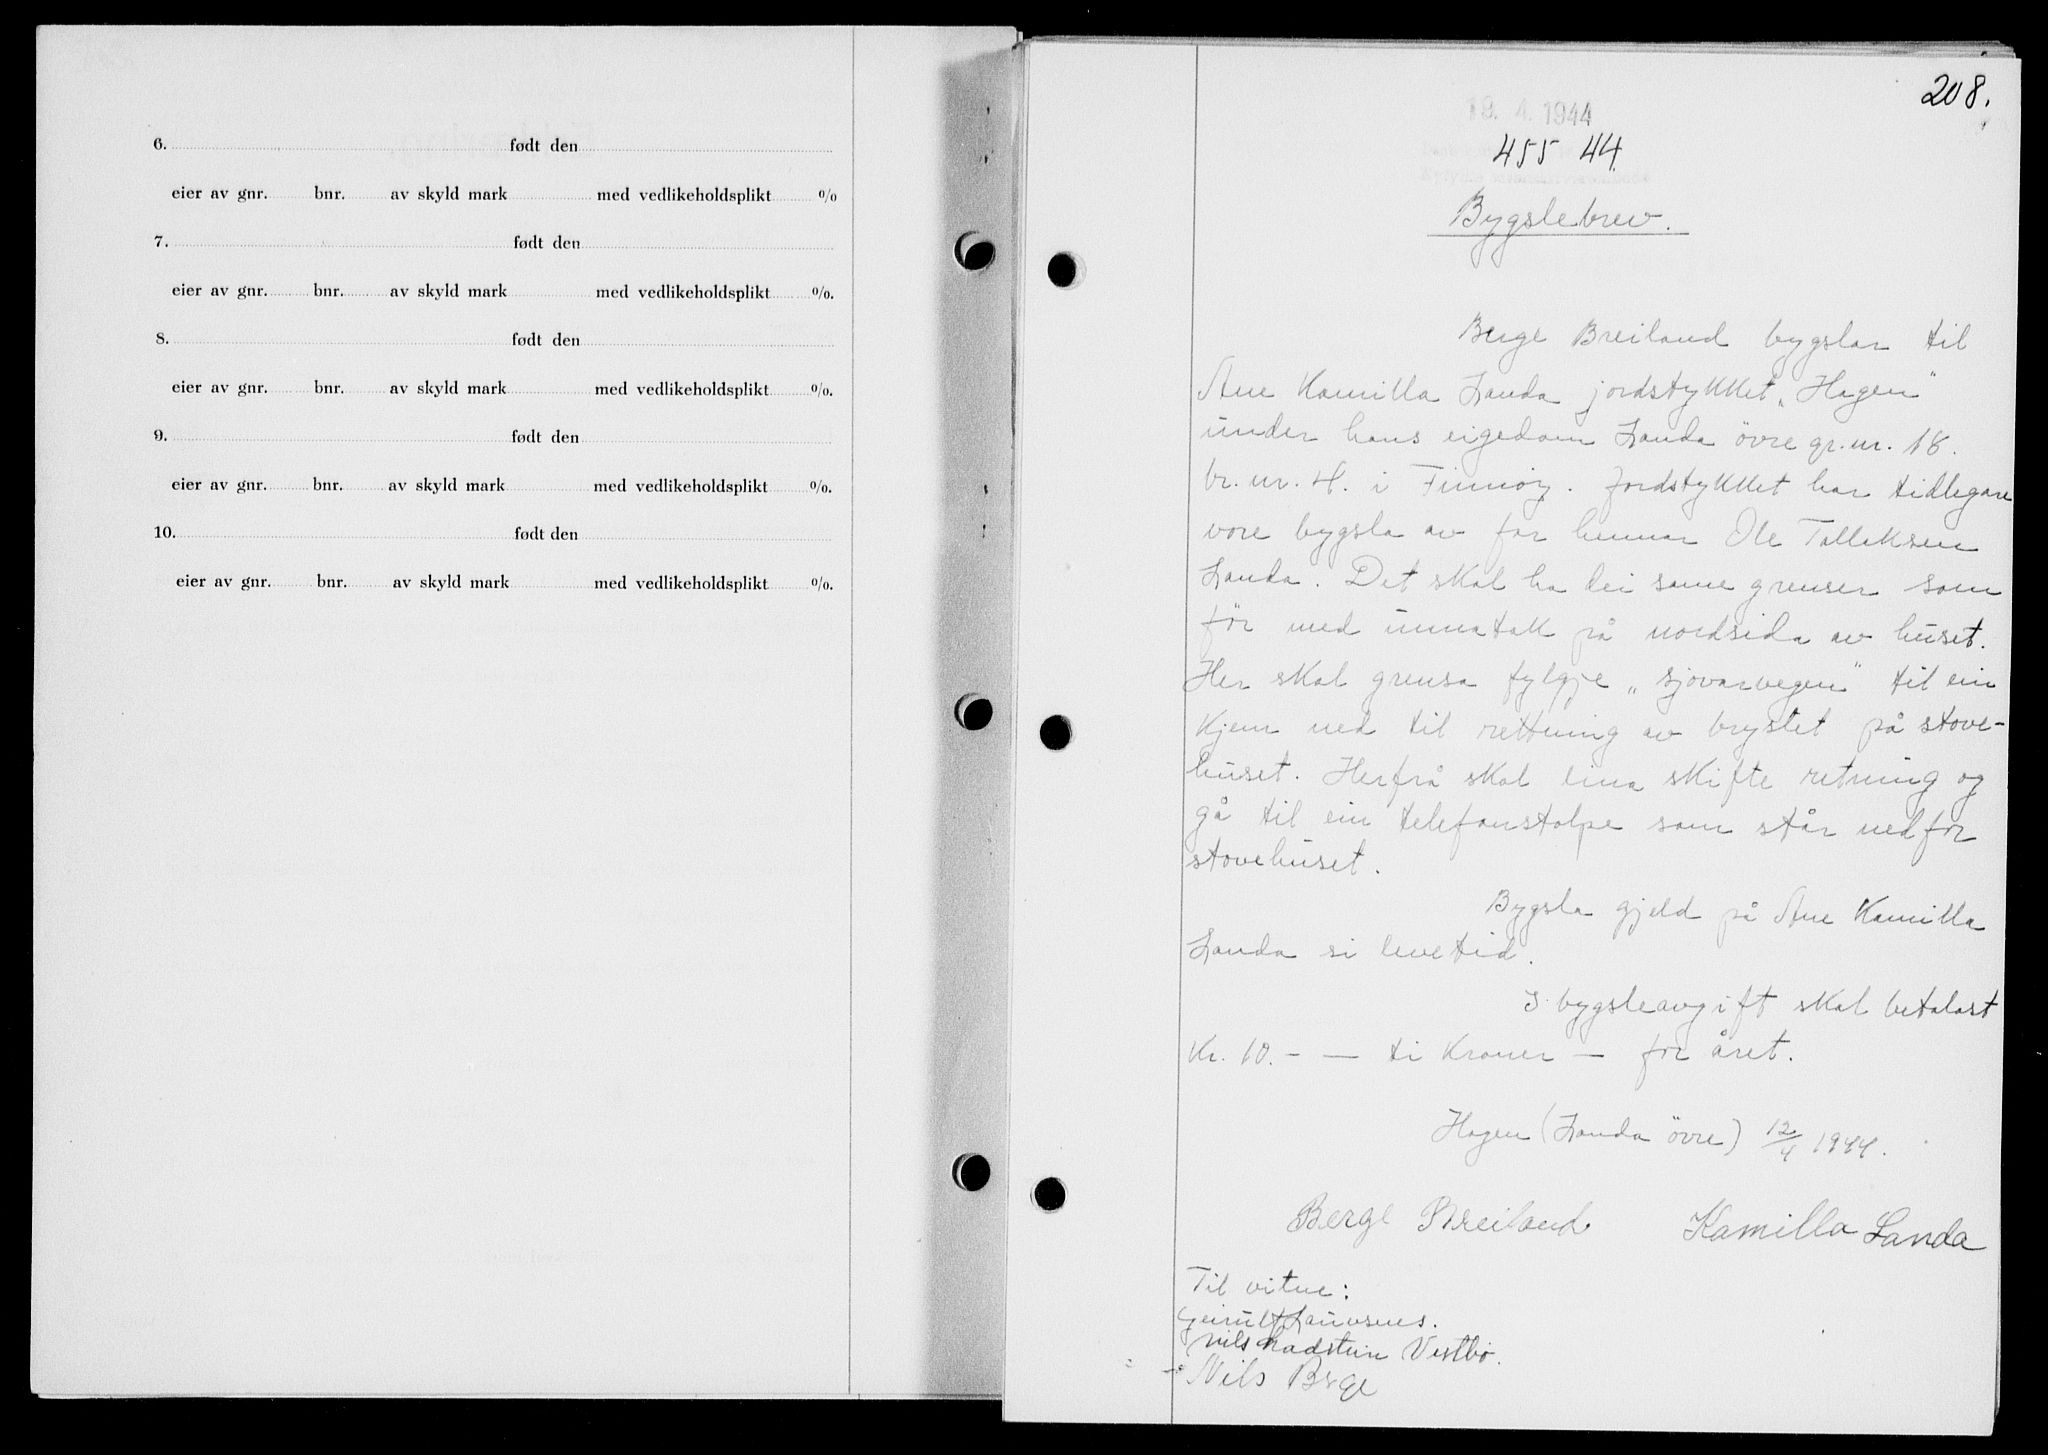 6. født den
eier av gnr. bnr. av skyld mark med vedlikeholdsplikt %
7. født den
eier av gnr. bnr. av skyld mark med vedlikeholdsplikt %.
8. født den
eier av gnr. bnr. av skyld mark med vedlikeholdsplikt %.
9. født den
eier av gnr. bnr. av skyld mark med vedlikeholdsplikt %.
10. født den
eier av gnr. bnr. av skyld mark med vedlikeholdsplikt %.
208.
19. 4. 1944
455 44.
Bygslebrev.
Berge Breiland bygslar til
Ane Kamilla Landa jordstykket „Hagen"
under hans eigedom Landa övre gr.nr. 18.
br. nr. 4. i Finnöy. Jordstykket har tidlegare
vore bygsla av far hennar Ole Tallaksen
Landa. Det skal ha dei same grenser som
för med unnatak på nordsida av huset.
Her skal grensa fylgje „sjövarvegen" til ein
kjem ned til rettning av brystet på stove-
huset. Herfrå skal lina skifte retning og
gå til ein telefonstolpe som står nedfor
stovehuset.
Bygsla gjeld på Ane Kamilla
Landa si levetid.
I bygsleavgift skal betalast
Kr. 10.- — ti kroner — for året.
Hagen (Landa övre) 12/4 1944.
Berge Breiland Kamilla Landa
Til vitne:
Nils Ladstein Vestbö.
Nils Berge